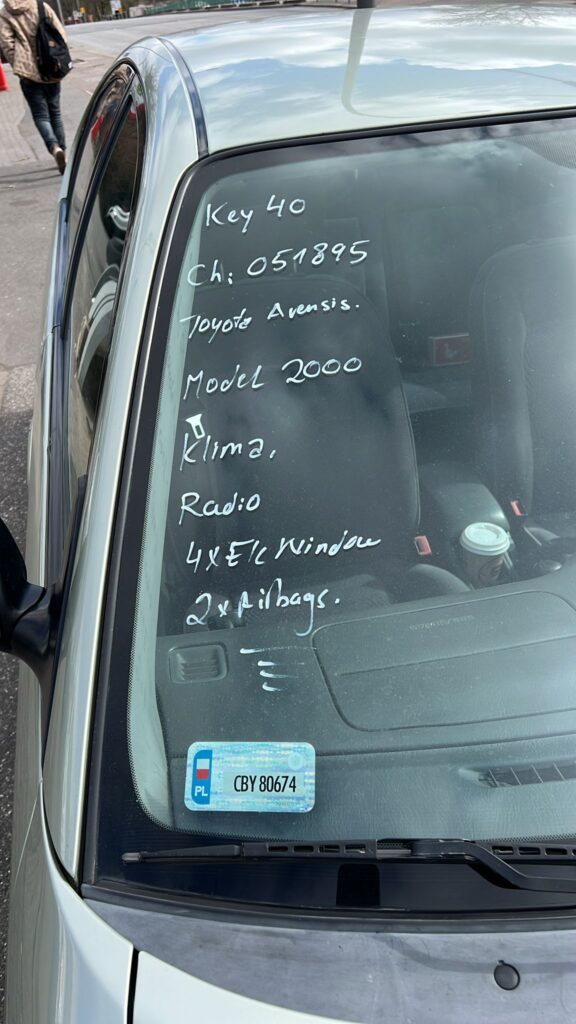 Key 40
Ch: 051895
Toyota Avensis.
Model 2000
Klima.
Radio
4x Elc Window
2x Airbags.
PL CBY 80674